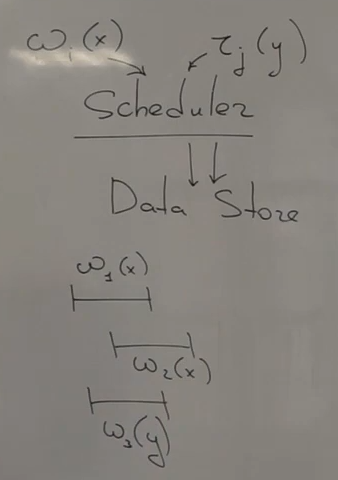 ω_i(x) r_j(y)
Scheduler
Data Store
ω_1(x)
ω_2(x)
ω_3(y)